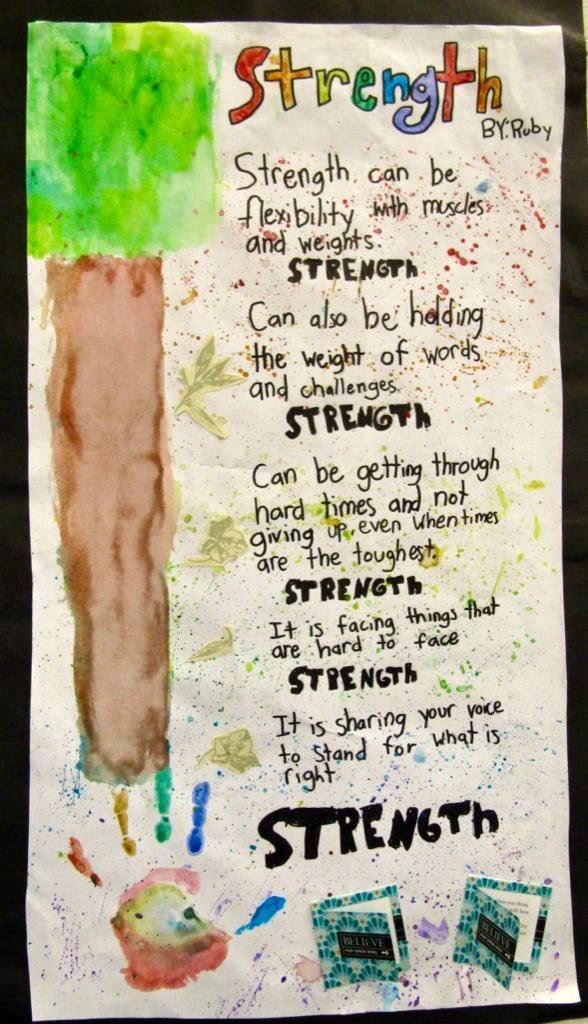 Strength
BY: Ruby
Strength can be
flexibility with muscles
and weights.
STRENGTH
Can also be holding
the weight of words
and challenges.
STRENGTH
Can be getting through
hard times and not
giving up, even when times
are the toughest.
STRENGTH
It is facing things that
are hard to face
STRENGTH
It is sharing your voice
to stand for what is
right
STRENGTH
BELIEVE
BELIEVE